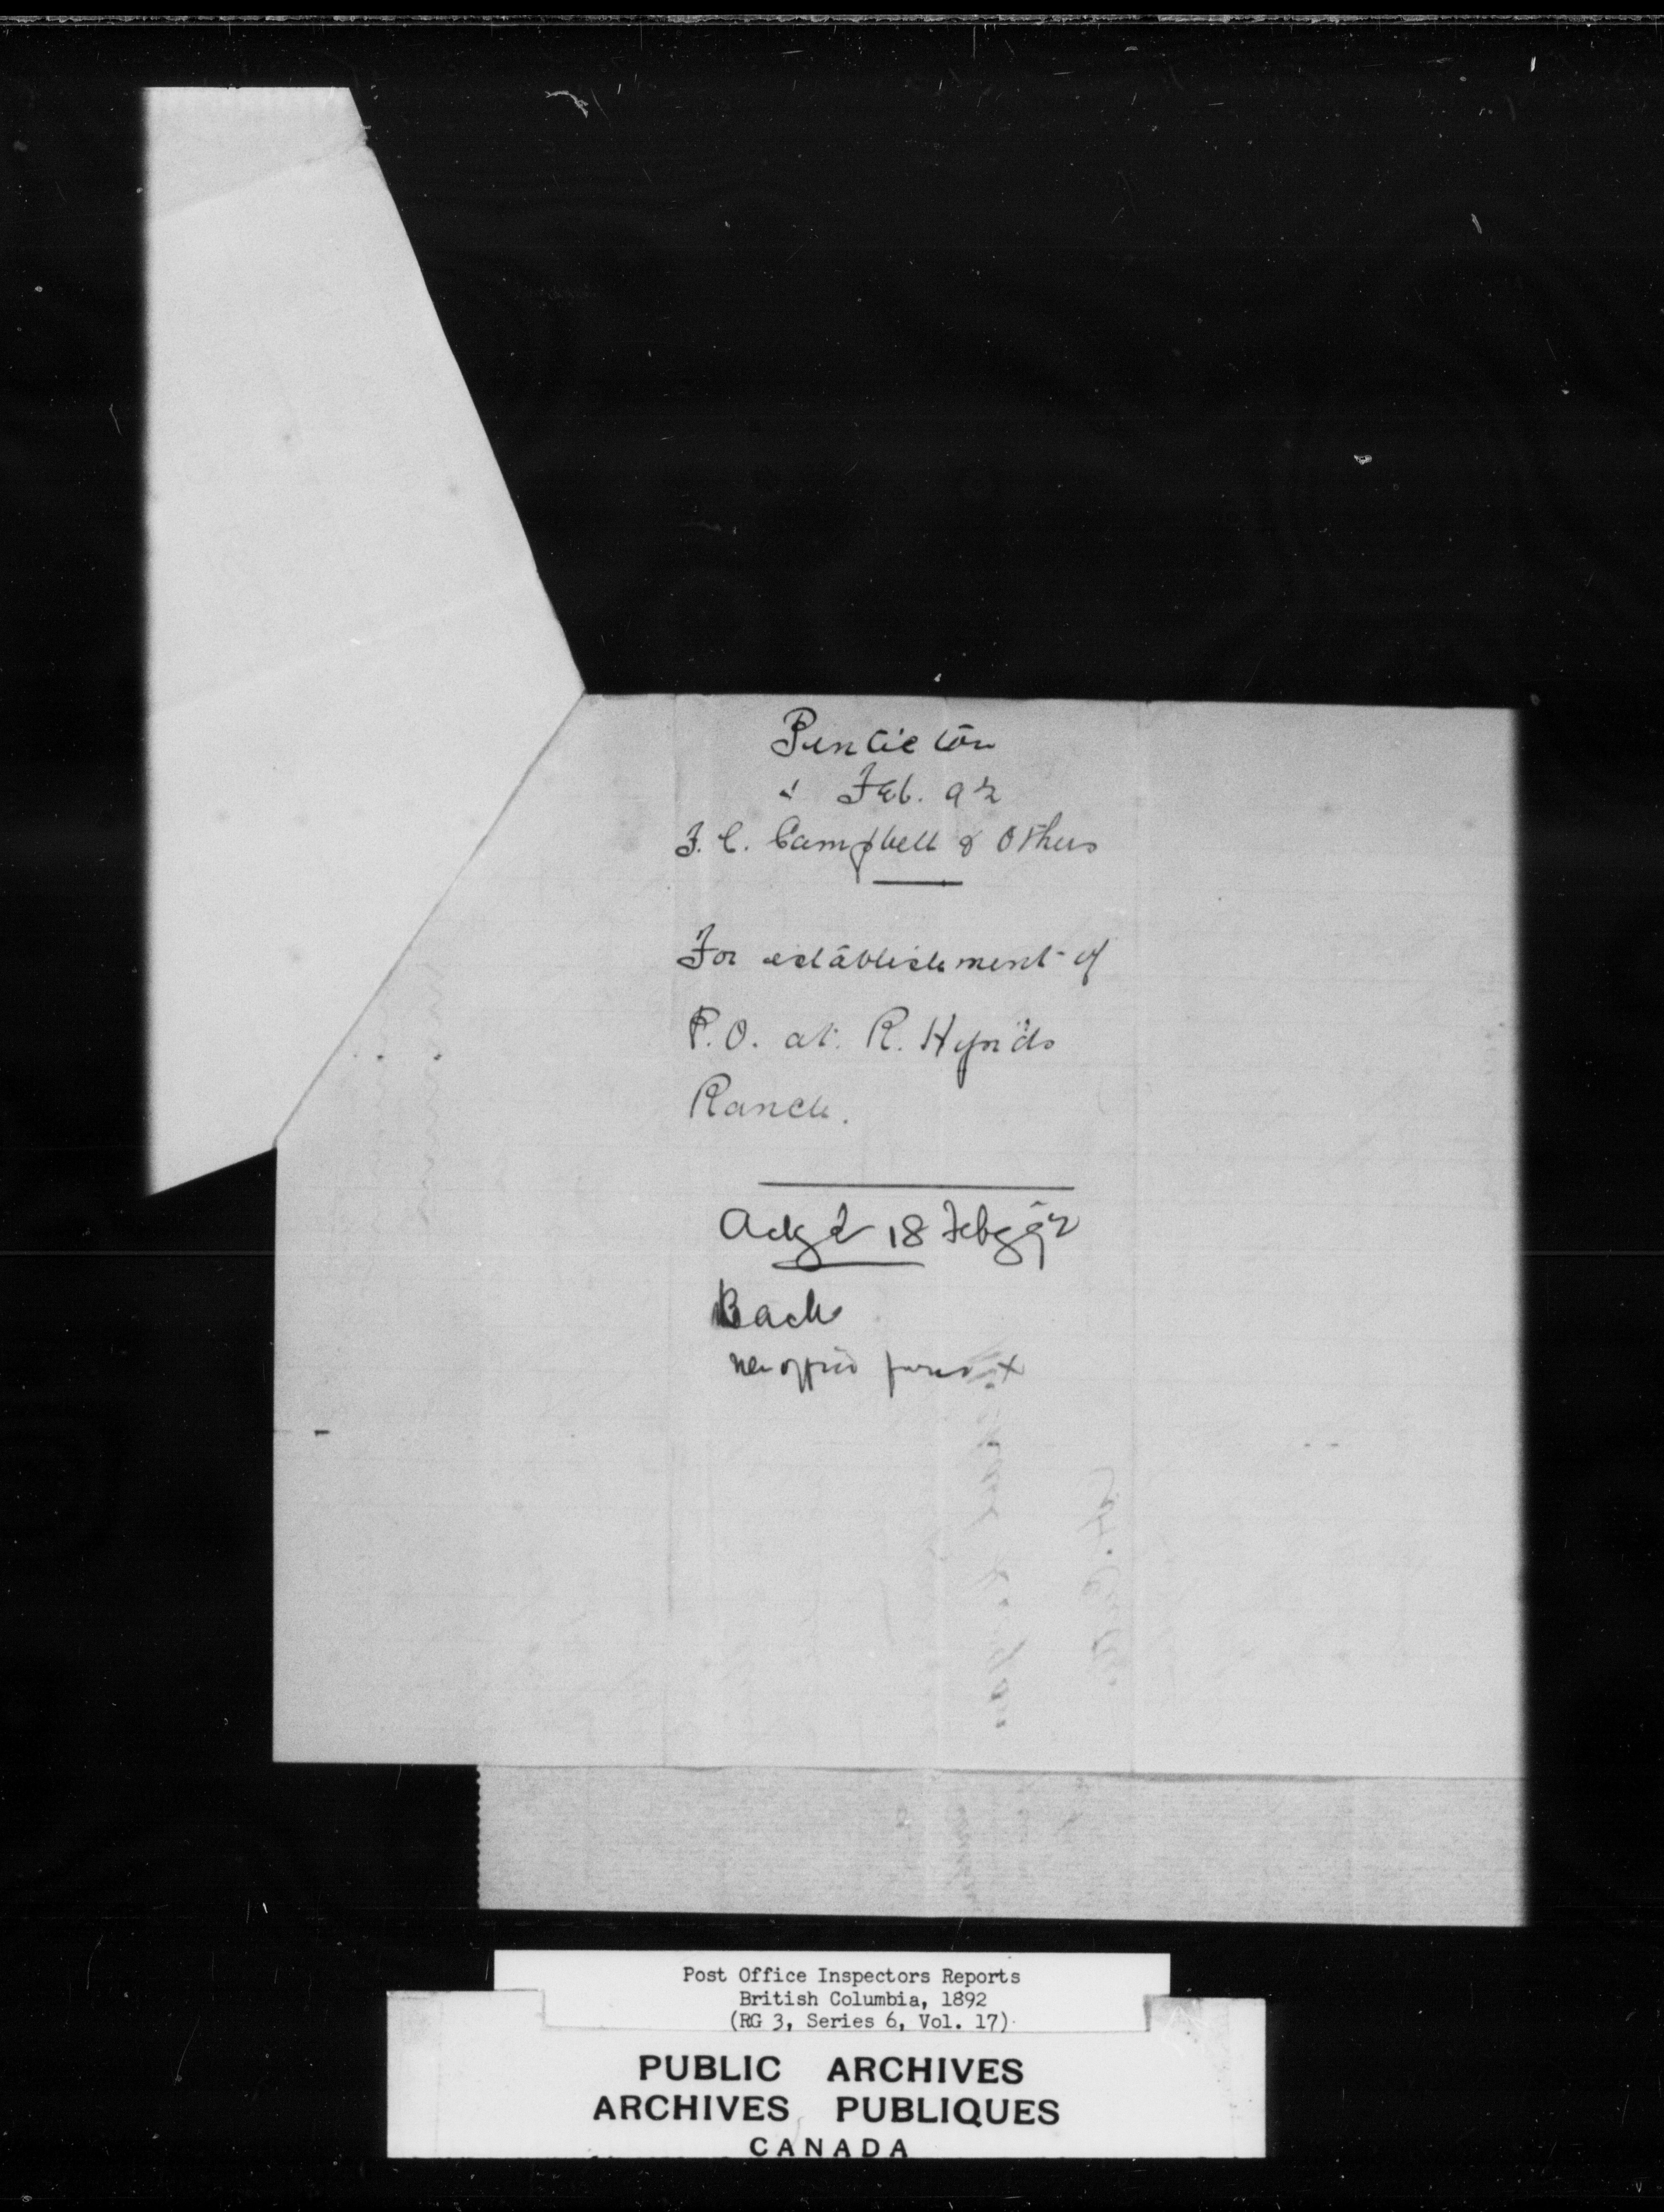 Penticton
" Feb. 92
F. C. Campbell & Others
For establishment of
P.O. at R. Hynds
Ranch.
Ackgd 18 Feby 92
Back
Post Office Inspectors Reports
British Columbia, 1892
(RG 3, Series 6, Vol. 17)
PUBLIC ARCHIVES
ARCHIVES PUBLIQUES
CANADA